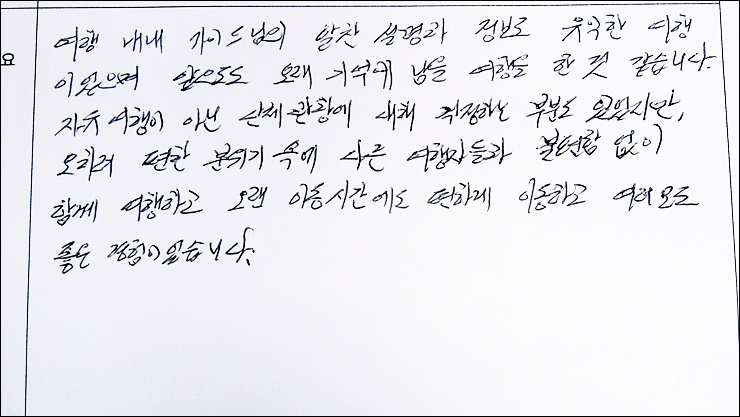 요
여행 내내 가이드님의 알찬 설명과 정보로 유익한 여행
이었으며 앞으로도 오래 기억에 남을 여행을 한 것 같습니다.
자유여행이 아닌 단체관광에 대해 걱정하는 부분도 있었지만,
오히려 편한 분위기 속에 다른 여행자들과 불편함 없이
함께 여행하고 오랜 이동시간에도 편하게 이동하고 여러모로
좋은 경험이었습니다.